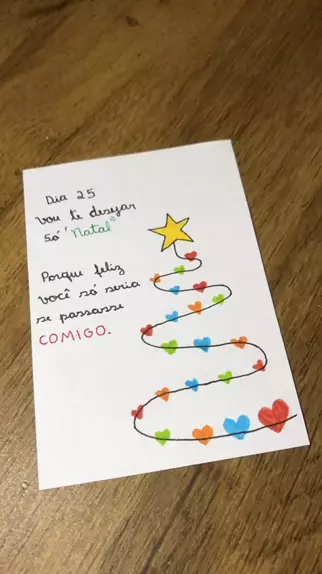 Dia 25
vou te desejar
só "Natal"
Porque feliz
você só seria
se passasse
COMIGO.